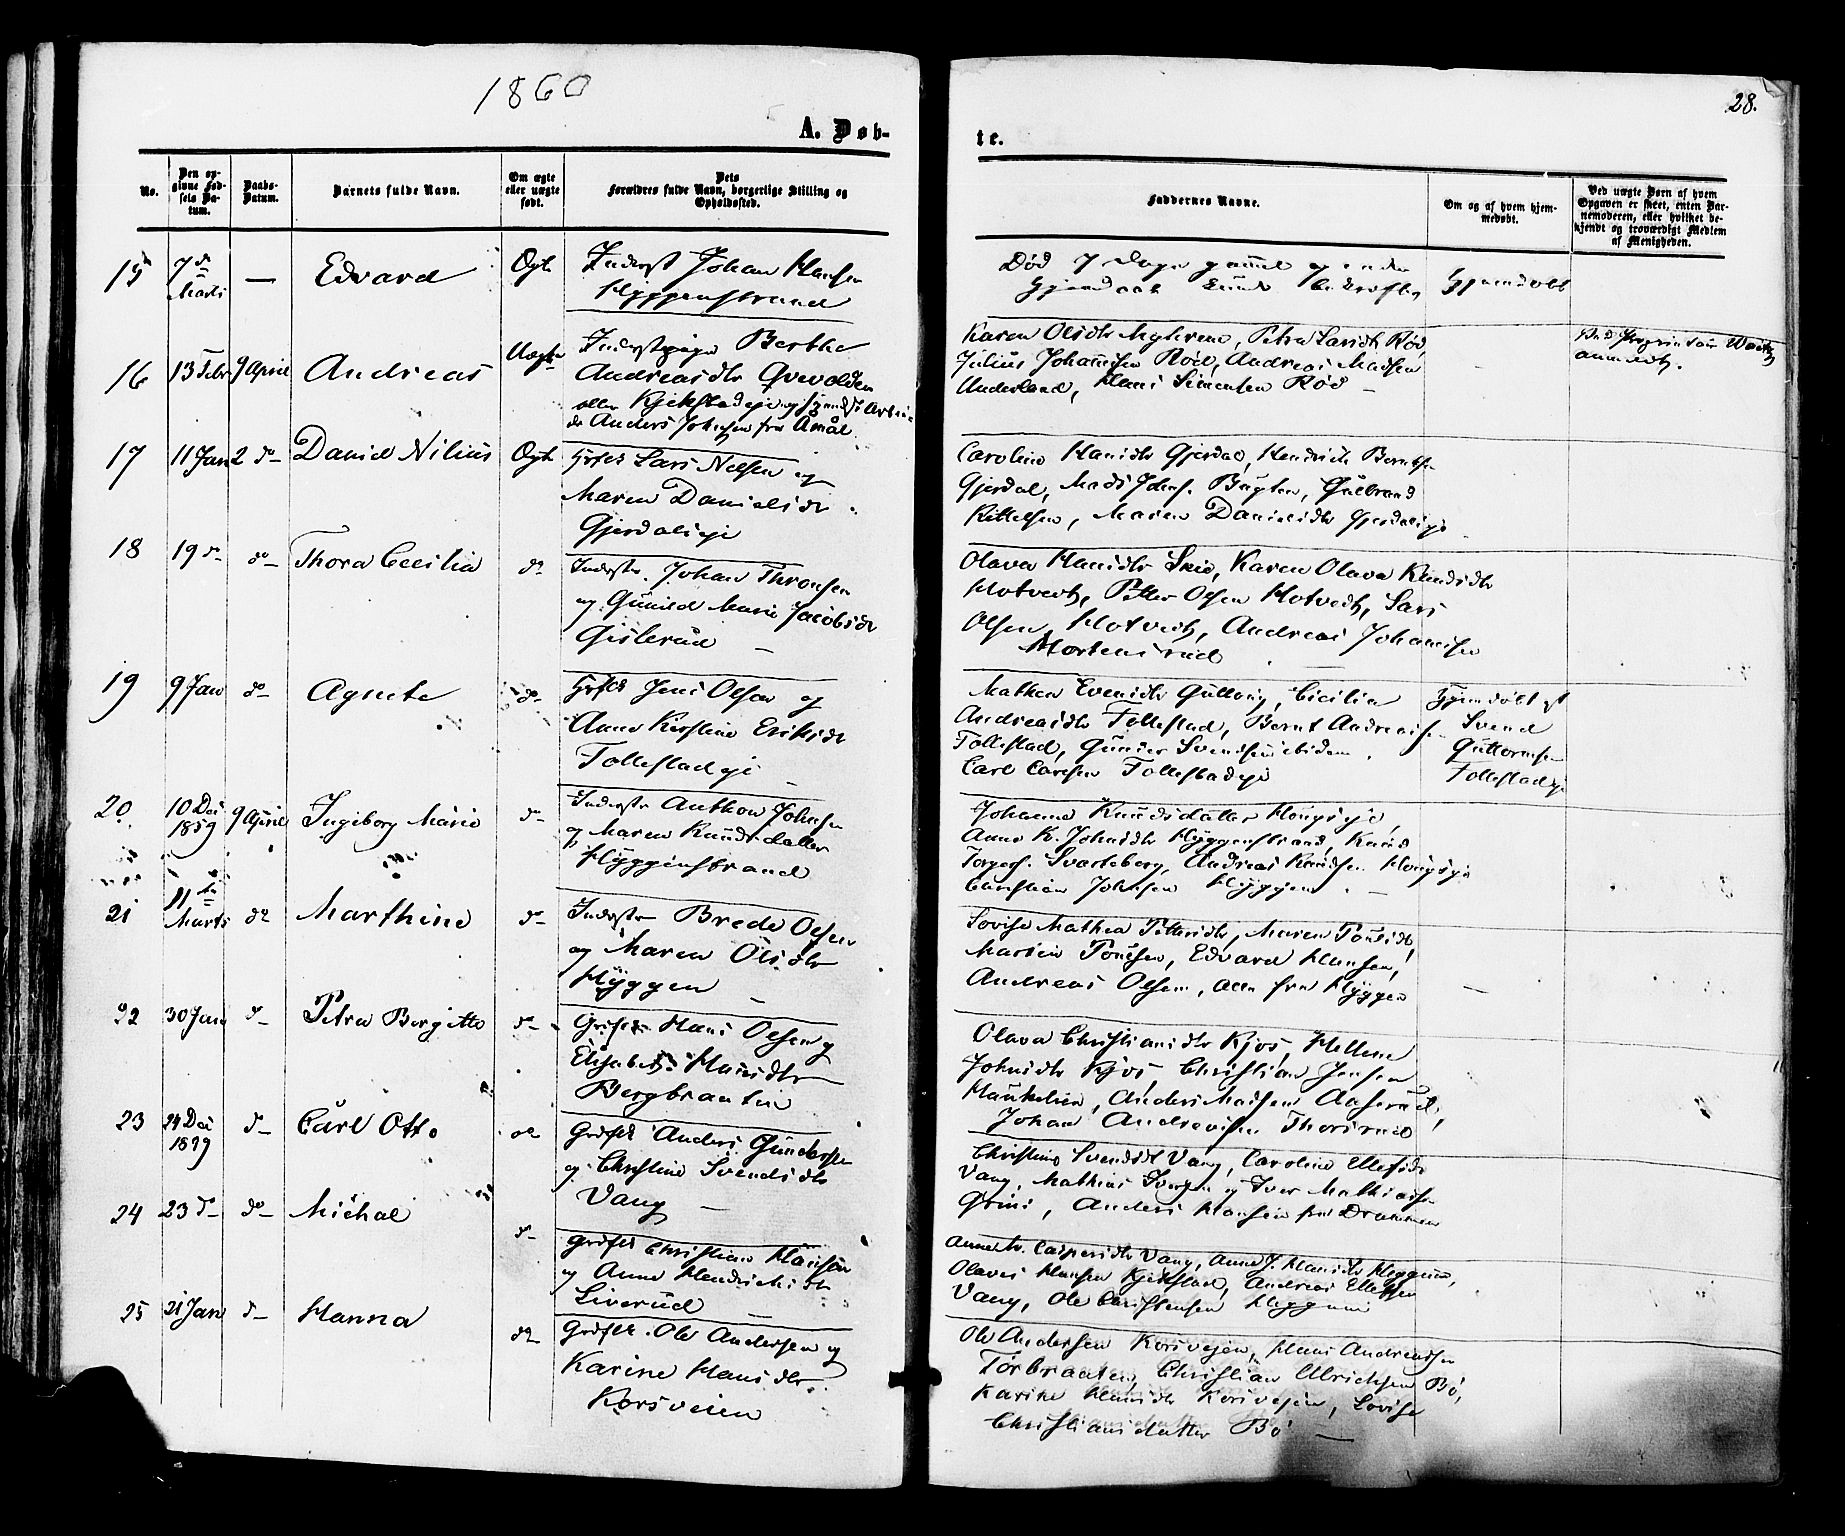 1860
28.
A. Døb-
te.
No.
Den op-
givne Fød-
sels Da-
tum.
Daabs-
Datum.
Barnets fulde Navn.
Om ægte
eller uægte
født.
Dets
Forældres fulde Navn, borgerlige Stilling og
Opholdssted.
Faddernes Navne.
Om og af hvem hjem-
medøbt.
Ved uægte Børn af hvem
Opgaven er skeet, enten Bar-
nemoderen, eller hvilket be-
kjendt og troværdigt Medlem
af Menigheden.
15
7de
Marts
—
Edvard
Ægte
Inderst Johan Hansen
Hyggenstrand
Død 7 Dage gammel
Hjemdøbt
16
13 Febr
9 April
Andreas
Uægte
Inderstpige Berthe
Andreasdtr Qvevolden
eller Kjekstadeje og
Anders Johnsen fra Åmål
Karen Olsdtr Myhrene, Petra Larsdtr Rød,
Julius Johannesen Rød, Andreas Madsen
Underland, Hans Simensen Rød —
17
11 Jan
2 do
Daniel Nilius
Ægte
Lars Nelsen og
Maren Danielsdr
Gjerdaleje
Caroline Hansdtr Gjerdal, Hendrich Berntsen
Gjerdal, Mads Johns. Bugten, Gulbrand
Kittelsen, Maren Danielsdtr Gjerdaleje
18
19 do
do
Thora Cecilia
do
Inderster Johan Thronsen
og Gunild Marie Jacobsdr
Gislerud —
Olava Hansdtr Krio, Karen Olava Knudsdtr
Hotvedt, Petter Olsen Hotvedt, Lars
Olsen Hotvedt, Andreas Johannesen
Mortensrud
19
9 Jan
do
Agnete
do
Jens Olsen og
Anne Kirstine Eriksdr
Follestadeje —
Mathea Evensdtr Gulloug, Cicilia
Andreasdtr Follestad, Bernt Andreas.
Follestad, Gunder Svendsen ibidem.
Carl Carlsen Follestadeje
Hjemdøbt af
Svend
Guttormsen
Follestadeje
20
10 Dec
1859
9 April
Ingeborg Marie
do
Inderster Anthon Johnsen
og Maren Knudsdatter
Hyggenstrand
Johanne Knudsdatter
Anne K. Johnsdtr Hyggenstrand, Knud
Torgers. Svarteberg, Andreas Knudsen
Christian Johnsen Hyggen. —
21
11te
Marts
do
Marthine
do
Inderster Brede Olsen
og Maren Olsdtr
Hyggen —
Lovise Mathea Pettersdtr, Maren Poulsdtr,
Martin Poulsen, Edvard Hansen,
Andreas Olsen, alle fra Hyggen
22
30 Jan
do
Petra Bergitte
do
Hans Olsen og
Elisabeth Hansdtr
Bergbraaten
Olava Christiansdtr Kjos, Hellene
Johnsdtr Kjos Christian Jensen
Haukelien, Anders Madsen Aaserud,
Johan Andreasen Thorsrud
23
24 Dec
1859
do
Carl Otto
do
Anders Gundersen
og Christine Svendsdtr
Vang —
Christine Svendsdt Vang, Caroline Ellefsdr
Vang, Mathias Iversen og Iver Mathiasen
Grini, Anders Hansen fra Drammen
24
23 do
do
Michal
do
Christian Hansen
og Anne Hendrichsdtr
Liverud —
Annetr. Caspersdtr Vang, Anne J. Hansdtr Heggum,
Olaves Hansen Kjekstad, Andreas Ellefsen
Vang, Ole Christensen Heggum
25
21 Jan
do
Hanna
do
Ole Andersen og
Karine Hansdtr
Korsveien
Ole Andersen Korsvejen, Hans Andreassen
Torbraaten, Christian Ulrichsen Bø,
Karine Hansdtr Korsvejen, Lovise
Christiansdatter Bø —